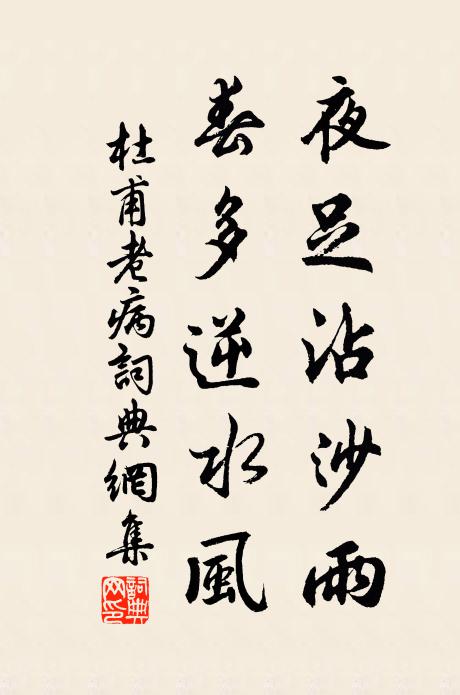 夜足沾沙雨
春多逆水風
杜甫老病詞典網集
詞典網印